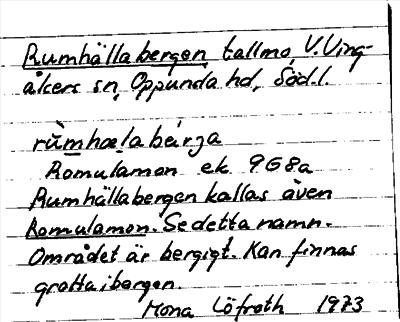 Rumhällabergen tallmo, V. Ving-
åkers sn, Oppunda hd, Söd.l.
rùmhælabèrja
Romulamon ek 9G8a
Rumhällabergen kallas även
Romulamon. Se detta namn.
Området är bergigt. Kan finnas
grotta i bergen.
Mona Löfroth 1973